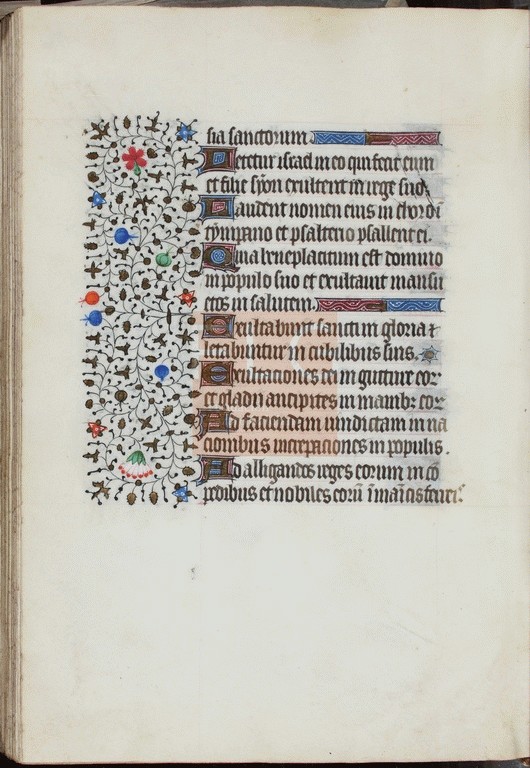 sia sanctorum.
Letetur israel in eo qui fecit eum
et filie syon exultent in rege suo.
Laudent nomen eius in chordi
tympano et psalterio psallent ei.
Quia beneplacitum est domino
in populo suo et exultauit mansu
etos in salutem.
Exultabunt sancti in gloria et
letabuntur in cubilibus suis.
Exultaciones dei in gutture eor
et gladii ancipites in manibz eor
Ad faciendam uindictam in na
cionibus increpaciones in populis.
Ad alligandos reges eorum in co
pedibus et nobiles eorū ī